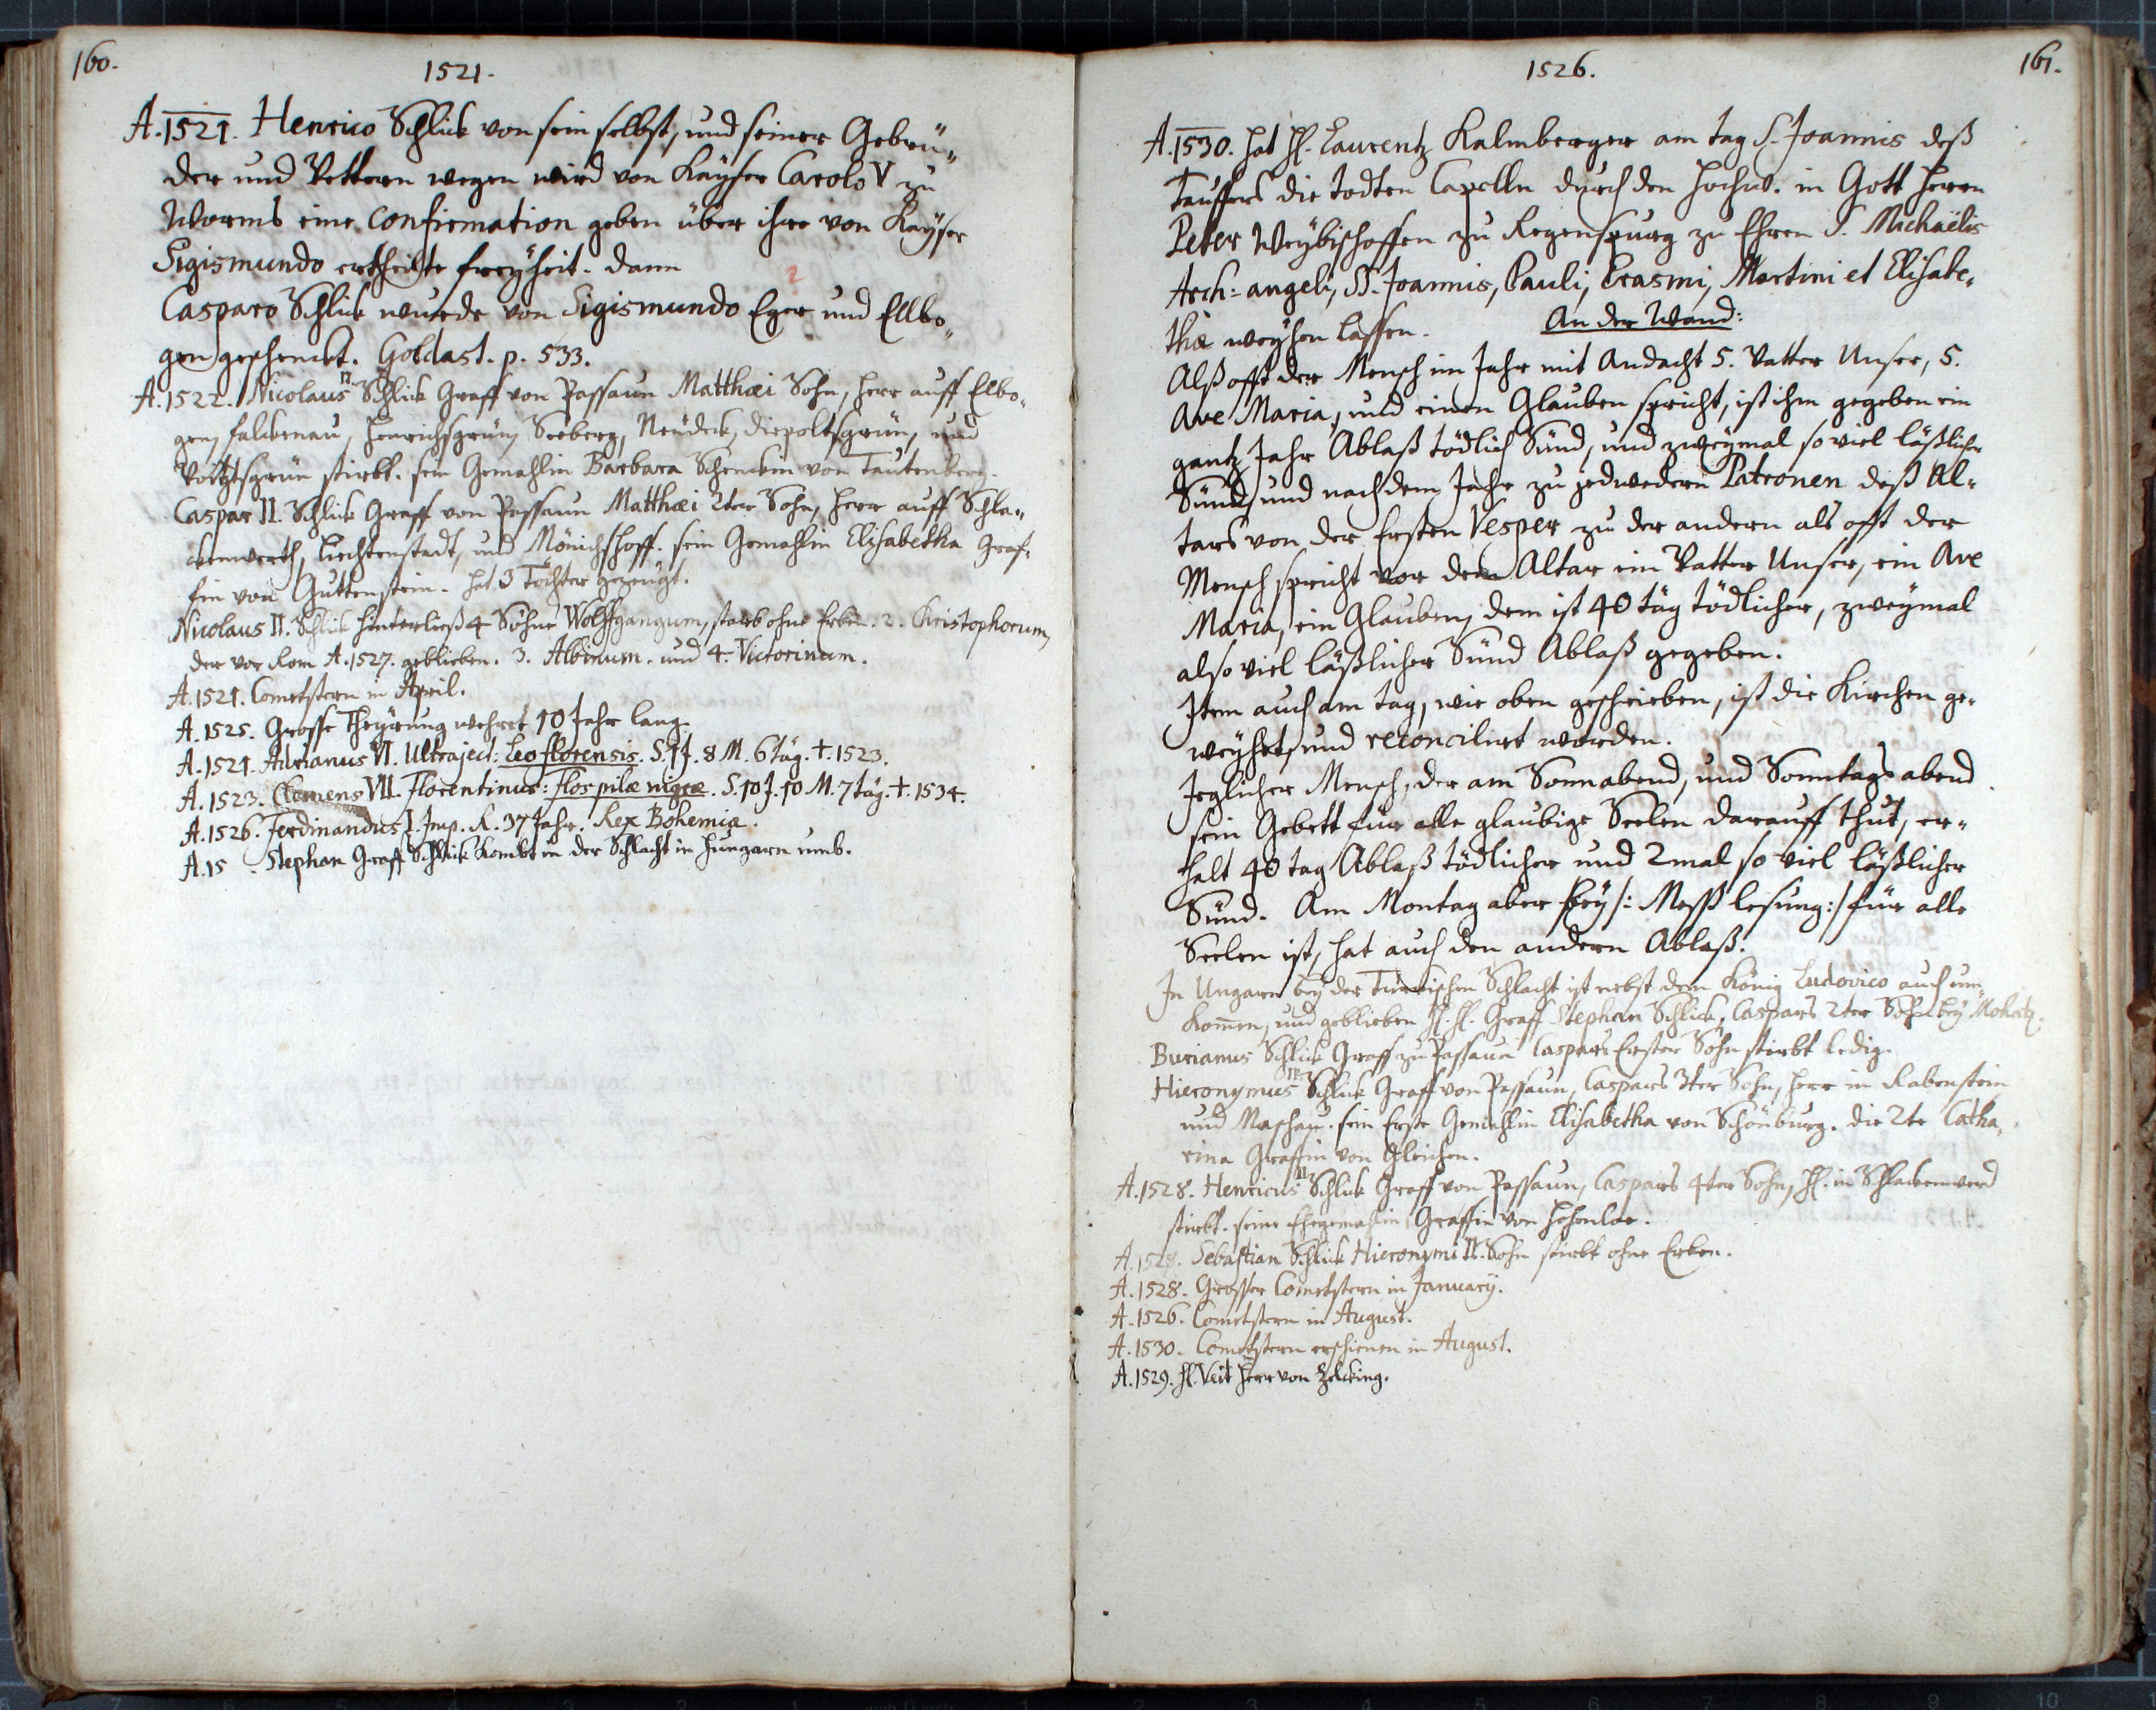 160.
1521.
A. 1521. Henrico Schlick von sein selbst, und seiner Gebrü„
der und Vettern wegen wird von Kaÿser Carolo V zu
Worms eine Confirmation geben über ihre von Kaÿser
Sigismundo ertheilte freÿheit. dann
2
Casparo Schlick wurde von Sigismundo Eger und Ellbo„
gen geschenckt. Goldast. p. 533.
A. 1522. Nicolaus II Schlick Graff von Passaun Matthæi Sohn, Herr auff Elbo„
gen, falckenau, Henrichsgrün, Seeberg, Neüdeck, diepoltsgrün, und
stirbt. sein Gemahlin Barbara Schenckin von Tautenberg.
Caspar II. Schlick Graff von Passaun Matthæi 2ter Sohn, Herr auff Schla„
ckenwerth, Liechtenstadt, und Mönichshoff. sein Gemahlin Elisabetha Gräf„
fin von Guttenstein. hat 3 Töchter gezeugt.
Nicolaus II. Schlick hinterließ 4 Söhne Wolffgangum, starb ohne Erben. 2. Christophorum,
der vor Rom A. 1527. geblieben. 3. Albinum. und 4. Victorinum.
A. 1521. Cometstern in April.
A. 1525. Grosse Theÿrung wehret 10 Jahr lang.
A. 1521. Adrianus VI. Ultraject: Leo florensis. S. 1 J. 8 M. 6 täg. † 1523.
A. 1523. Clemens VII. Florentinus: Flos pilæ nigræ. S. 10 J. 10 M. 7 täg. †. 1534.
A. 1526. Ferdinandus I. Imp. R. 37 Jahr. Rex Bohemiæ.
A. 15 . Stephan Graff Schlick kombt in der Schlacht in Hungarn umb.
1526.
161.
A. 1530. hat H. Laurentz Kalmberger am tag S. Joannis deß
Tauffers die todten Capelln durch den Hochw. in Gott Herrn
Peter Weÿbischoffen zu Regenspurg zu Ehren S. Michaëlis
Arch: angeli, SS. Joannis, Pauli, Erasmi, Martini et Elisabe„
thæ weÿhen lassen. An der Wand:
Alß offt der Mensch im Jahr mit Andacht 5. Vatter Unser, 5.
Ave Maria, und einen Glauben spricht, ist ihm gegeben ein
gantz Jahr Ablaß tödlich Sünd, und zweÿmal so viel läßlicher
Sünd, und nach dem Jahr zu jedwedern Patronen deß Al„
tars von der Ersten Vesper zu der andern als offt der
Mensch spricht vor dem Altar ein Vatter Unser, ein Ave
Maria, ein Glauben, dem ist 40 täg tödlicher, zweÿmal
also viel läßlicher Sünd Ablaß gegeben.
Item auch am tag, wie oben geschrieben, ist die Kirchen ge„
weÿhet, und reconciliret worden.
Jeglicher Mensch, der am Sonnabend, und Sonntags abend
sein Gebett für alle glaubige Seelen darauff thut, er„
halt 40 tag Ablaß tödlicher und 2mal so viel läßlicher
Sünd. Am Montag aber beÿ /: Meß lesung:/ für alle
Seelen ist, hat auch den andern Ablaß.
In Ungarn beÿ der Türckischen Schlacht ist nebst dem König Ludovico auch um„
kommen, und geblieben H. H. Graff Stephan Schlick, Caspars 2ter Sohn beÿ Mohatz.
Burianus Schlick Graff zu Passaun Caspars Erster Sohn stirbt ledig.
Hieronymus II Schlick Graff von Passaun, Caspars 3ter Sohn, Herr in Rabenstein
und Maschau. sein Erste Gemahlin Elisabetha von Schönburg. die 2te Catha„
rina Gräffin von Gleichen.
A. 1528. Henricus II Schlick Graff von Passaun, Caspars 4ter Sohn, H. in Schlackenwerd
stirbt. seine Ehegemahlin Gräffin von Hohenloe.
A. 1528. Sebastian Schlick Hieronymi II. Sohn stirbt ohne Erben.
A. 1528. Grosser Cometstern in Januarÿ.
A. 1526. Cometstern in August.
A. 1530. Cometstern erschienen in August.
A. 1529. H. Veit Herr von Zelcking.